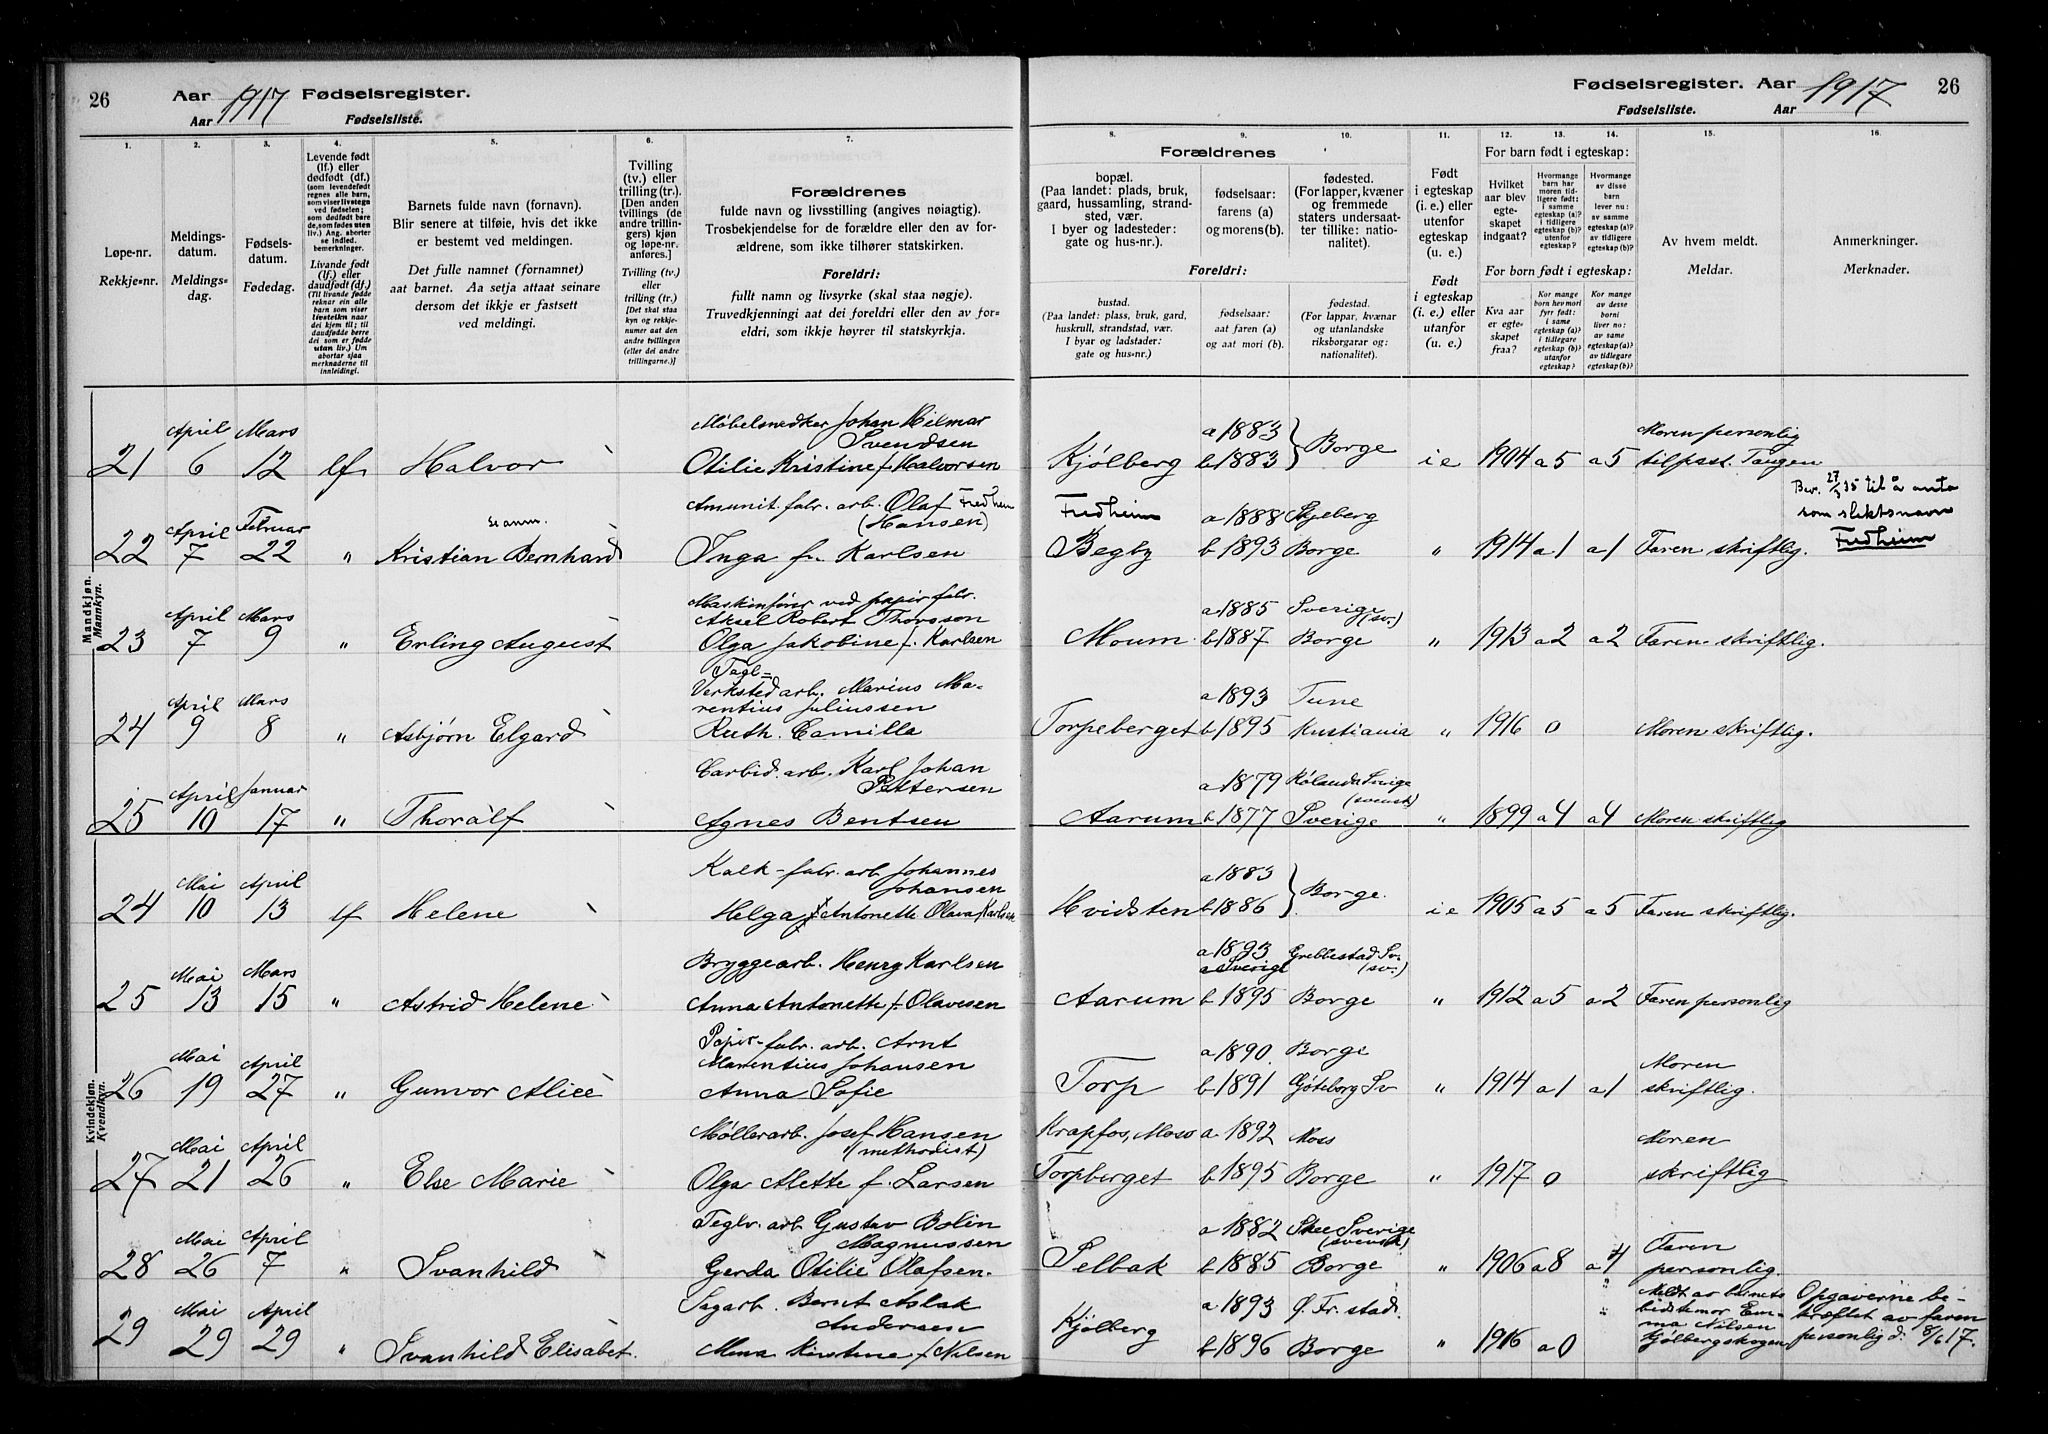 26 Aar 1917 Fødselsregister.
Aar Fødselsliste.
Fødselsregister. Aar 1917 26
Fødselsliste. Aar
1. 2. 3. 4. 5. 6. 7.
Løpe-nr.
Rekkje-nr.
Meldings-
datum.
Meldings-
dag.
Fødsels-
datum.
Fødedag.
Levende født
(lf.) eller
dødfødt (df.)
(som levendefødt
regnes alle barn,
som viser livstegn
ved fødselen;
som dødfødt bare
de, som fødes uten
liv.) Ang. aborter
se indled.
bemerkninger.
Livande født
(lf.) eller
daudfødt (df.)
(Til livande fødde
reknar ein alle
barn som viser
livsteikn naar
dei kjem til; til
daudfødde berre
dei som er fødde
utan liv.) Um
abortar sjaa
merknaderne til
innleidingi.
Barnets fulde navn (fornavn).
Blir senere at tilføie, hvis det ikke
er bestemt ved meldingen.
Det fulle namnet (fornamnet)
aat barnet. Aa setja attaat seinare
dersom det ikkje er fastsett
ved meldingi.
Tvilling
(tv.) eller
trilling (tr.).
[Den anden
tvillings (de
andre trillin-
gers) kjøn
og løpe-nr.
anføres.]
Tvilling (tv.)
eller
trilling (tr.)
[Det skal staa
kyn og rekkje-
numer aat den
andre tvillingen
(eller dei andre
trillingarne.)]
Forældrenes
fulde navn og livsstilling (angives nøiagtig).
Trosbekjendelse for de forældre eller den av for-
ældrene, som ikke tilhører statskirken.
Foreldri:
fullt namn og livsyrke (skal staa nøgje).
Truvedkjenningi aat dei foreldri eller den av for-
eldri, som ikkje høyrer til statskyrkja.
8. 9. 10. 11. 12. 13. 14. 15. 16.
Forældrenes
bopæl.
(Paa landet: plads, bruk,
gaard, hussamling, strand-
sted, vær.
I byer og ladesteder:
gate og hus-nr.).
fødselsaar:
farens (a)
og morens (b).
fødested.
(For lapper, kvæner
og fremmede
staters undersaat-
ter tillike: natio-
nalitet).
Foreldri:
bustad.
(Paa landet: plass, bruk, gard,
huskrull, strandstad, vær.
I byar og ladstader:
gate og hus-nr.)
fødselsaar:
aat faren (a)
og aat mori (b).
fødestad.
(For lappar, kvænar
og utanlandske
riksborgarar og:
nationalitet).
Født
i egteskap
(i. e.) eller
utenfor
egteskap
(u. e.)
Født
i egteskap
(i. e.) eller
utanfor
egteskap
(u. e.)
For barn født i egteskap:
Hvilket
aar blev
egte-
skapet
indgaat?
Hvormange
barn har
moren tid-
ligere født:
i samme
egteskap (a)?
i tidligere
egteskap (b)?
utenfor
egteskap?
Hvormange
av disse
barn
lever nu:
av samme
egteskap (a)?
av tidligere
egteskap (b)?
For born født i egteskap:
Kva aar
er egte-
skapet
fraa?
Kor mange
born hev mori
fyrr født:
i same
egteskap (a)?
i tidlegare
egteskap (b)?
utanfor
egteskap?
Kor mange
av desse
borni
liver no:
av same
egteskap (a)?
av tidlegare
egteskap (b)?
Av hvem meldt.
Meldar.
Anmerkninger.
Merknader.
Mandkjøn.
Mannkyn.
April Mars Møbelsnedker Johan Hilmar Svendsen a 1883 Moren personlig
21 6 12 lf Halvor Otilie Kristine f. Halvorsen Kjølberg b 1883 } Borge i e 1904 a 5 a 5 tilpsst. Tangen
April Februar Amunit. fabr. arb. Olaf Fredheim (Hansen) Fredheim a 1888 Skjeberg Bev. 27/3 35 til å anta som slektsnavn Fredheim
22 7 22 " Kristian Bernhard Inga f. Karlsen Begby b 1893 Borge " 1914 a 1 a 1 Faren skriftlig.
April Mars Maskinfører ved papir fabr. Aksel Robert Thorsson a 1885 Sverige (sv.)
23 7 9 " Erling August Olga Jakobine f. Karlsen Moum b 1887 Borge " 1913 a 2 a 2 Faren skriftlig.
April Mars Tagl= Verksted arb. Marius Ma-
rentius Juliussen a 1893 Tune
24 9 8 " Asbjørn Elgard Ruth Camilla Torpeberget b 1895 Kristiania " 1916 0 Moren skriftlig.
April Januar Carbid. arb. Karl Johan Pettersen a 1879 Sverige (svensk)
25 10 17 " Thoralf Agnes Bentsen Aarum b 1877 Sverige " 1899 a 4 a 4 Moren skriftlig
Kvindekjøn.
Kvendkyn.
Mai April Kalk-fabr. arb Johannes Johansen a 1883
24 10 13 lf Helene Helga Antonette Olava Karlsen Hvidsten b 1886 } Borge. i e 1905 a 5 a 5 Faren skriftlig.
Mai Mars Bryggearb. Henry Karlsen a 1893 Grebbestad Sv. (sv.)
a Sverige
25 13 15 " Astrid Helene Anna Antonette f. Olavesen Aarum b 1895 Borge " 1912 a 5 a 2 Faren personlig
Mai April Papir-fabr. arb. Arnt Marentius Johansen a 1890. Borge Moren
26 19 27 " Gunvor Alice Anna Sofie Torp b 1891 Gøteborg Sv " 1914 a 1 a 1 skriftlig.
Mai April Møllerarb. Josef Hansen (methodist) Krapfos, Moss a. 1892 Moss Moren
27 21 26 " Else Marie Olga Alette f. Larsen Torpberget b 1895 Borge " 1917 0 skriftlig
Mai April Teglv. arb Gustav Bolin Magnussen a 1882 Skee Sverige (svensk) Faren
28 26 7 " Svanhild Gerda Otilie Olafsen. Selbak b 1885 Borge " 1906 a 8 a 4 personlig.
Mai April Sagarb. Bernt Aslak Andersen Kjølberg a 1893 Ø. Fr.stad. Meldt av barnets bedstemor Em-
ma Nilsen Kjølbergskogen
29 29 29 " Svanhild Elisabet. Mena Kirstine f. Nilsen b 1896 Borge " 1916 a 0
Opgaverne be-
kræftet av faren
personlig d. 8/6 17.